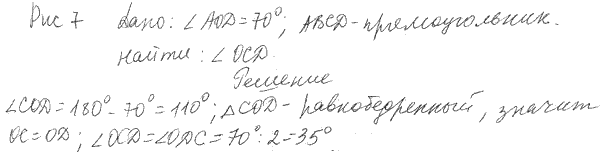 Рис 7 Дано: ∠AOD=70°; ABCD-прямоугольник.
найти: ∠OCD.
Решение
∠COD=180°-70°=110°; △COD- равнобедренный, значит
OC=OD; ∠OCD=∠ODC=70°:2=35°